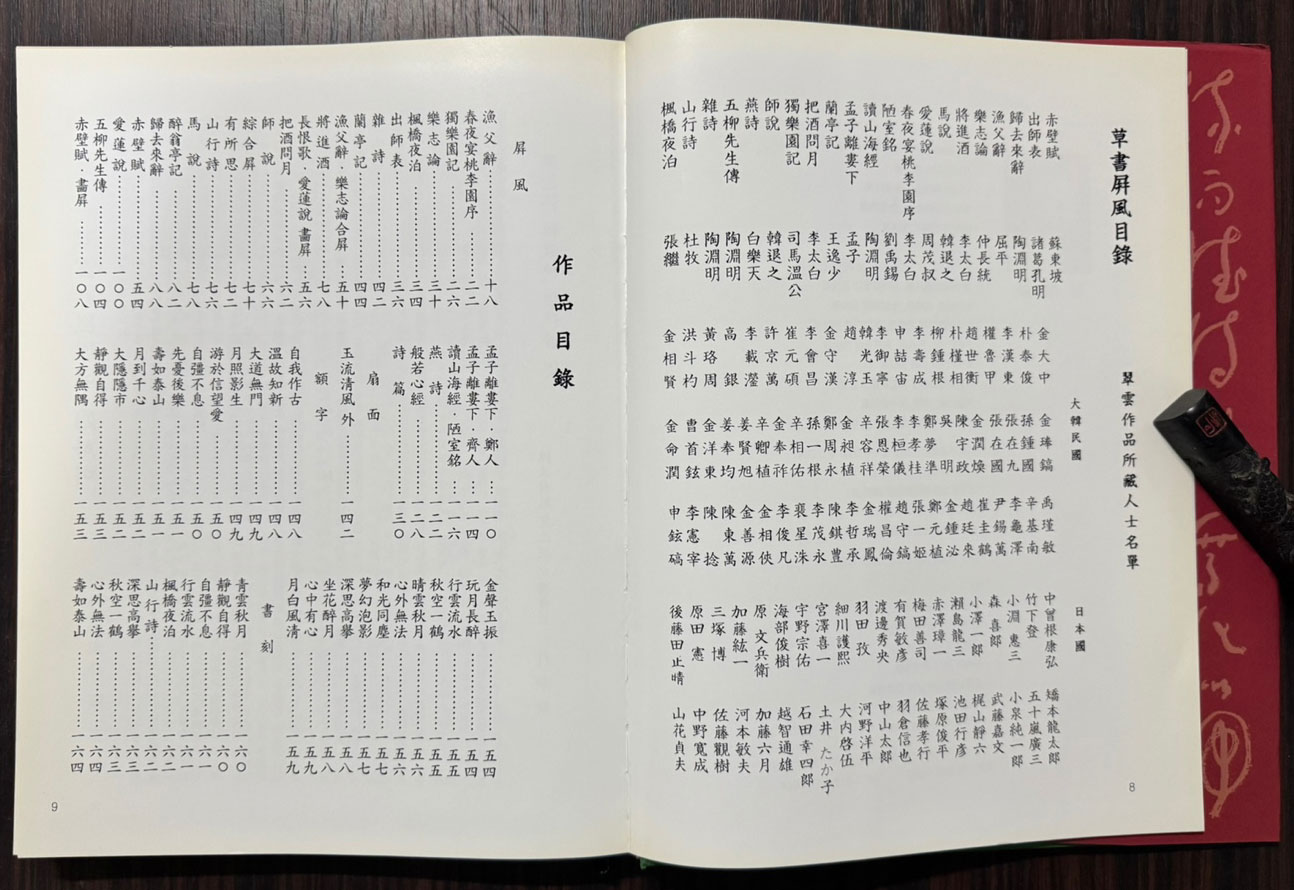 草書屛風目錄
赤壁賦 蘇東坡
出師表 諸葛孔明
歸去來辭 陶淵明
漁父辭 屈平
樂志論 仲長統
將進酒 李太白
馬說 韓退之
愛蓮說 周茂叔
春夜宴桃李園序 李太白
陋室銘 劉禹錫
讀山海經 陶淵明
孟子離婁下 孟子
蘭亭記 王逸少
把酒問月 李太白
獨樂園記 司馬溫公
師說 韓退之
燕詩 白樂天
五柳先生傳 陶淵明
雜詩 陶淵明
山行詩 杜牧
楓橋夜泊 張繼
翠雲作品所藏人士名單
大韓民國
金大中
朴泰俊
李漢東
權魯甲
趙世衡
朴槿相
柳鍾根
李壽成
申喆宙
李御寧
韓光玉
趙淳
金守漢
李會昌
崔元碩
許京萬
李載瀅
高銀
黃珞周
洪斗杓
金相賢
金琫鎬
孫鍾國
張在九
張在國
金潤煥
陳宇政
吳明
鄭夢準
李孝桂
李桓儀
張恩榮
辛容祥
金昶植
鄭周永
孫一根
辛相佑
金奉祚
辛卿植
姜賢旭
姜奉均
金洋東
曹首鉉
金命潤
禹瑾敏
辛基南
李龜澤
尹錫萬
崔圭鶴
趙廷來
金鍾泌
鄭元植
張一姬
趙守鎬
權昌倫
金瑞鳳
李哲承
陳錤豊
李茂永
裵星洙
李俊凡
金相俠
金善源
陳東萬
陳稔
李憲宰
申鉉碻
日本國
中曾根康弘
竹下登
小淵惠三
森喜郎
小澤一郎
瀨島龍三
赤澤璋一
梅田善司
有賀敏彦
渡邊秀央
羽田孜
細川護熙
宮澤喜一
宇野宗佑
海部俊樹
原文兵衛
加藤紘一
三塚博
原田憲
後藤田正晴
矯本龍太郎
五十嵐廣三
小泉純一郎
武藤嘉文
梶山靜六
池田行彦
塚原俊平
佐藤孝行
羽倉信也
中山太郎
河野洋平
大内啓伍
土井たか子
石田幸四郎
越智通雄
加藤六月
河本敏夫
佐藤觀樹
中野寬成
山花貞夫
8
作品目錄
屛風
漁父辭 … 十八
春夜宴桃李園序 … 二二
獨樂園記 … 二六
樂志論 … 三十
楓橋夜泊 … 三四
出師表 … 三六
雜詩 … 四二
蘭亭記 … 四四
漁父辭·樂志論合屛 … 五十
將進酒 … 七八
長恨歌·愛蓮說 畵屛 … 五六
把酒問月 … 六二
師說 … 六六
綜合屛 … 七十
有所思 … 七二
山行詩 … 七六
馬說 … 七八
醉翁亭記 … 八二
歸去來辭 … 八八
赤壁賦 … 五四
愛蓮說 … 一○○
五柳先生傳 … 一○四
赤壁賦·畵屛 … 一○八
孟子離婁下·鄭人 … 一一○
孟子離婁下·齊人 … 一一二
讀山海經·陋室銘 … 一一六
燕詩 … 一二二
般若心經 … 一二八
詩篇 … 一三○
扇面
玉流淸風 外 … 一四二
額字
自我作古 … 一四八
溫故知新 … 一四九
大道無門 … 一四九
月照影生 … 一四九
游於信望愛 … 一五○
自彊不息 … 一五○
先憂後樂 … 一五一
壽如泰山 … 一五一
月到千心 … 一五二
大隱隱市 … 一五二
靜觀自得 … 一五三
大方無隅 … 一五三
金聲玉振 … 一五四
玩月長醉 … 一五四
行雲流水 … 一五五
秋空一鶴 … 一五五
晴雲秋月 … 一五六
心外無法 … 一五六
和光同塵 … 一五七
夢幻泡影 … 一五七
深思高擧 … 一五八
坐花醉月 … 一五八
心中有心 … 一五九
月白風淸 … 一五九
書刻
靑雲秋月 … 一六○
靜觀自得 … 一六○
自彊不息 … 一六一
行雲流水 … 一六一
楓橋夜泊 … 一六二
山行詩 … 一六二
深思高擧 … 一六三
秋空一鶴 … 一六三
心外無法 … 一六四
壽如泰山 … 一六四
9